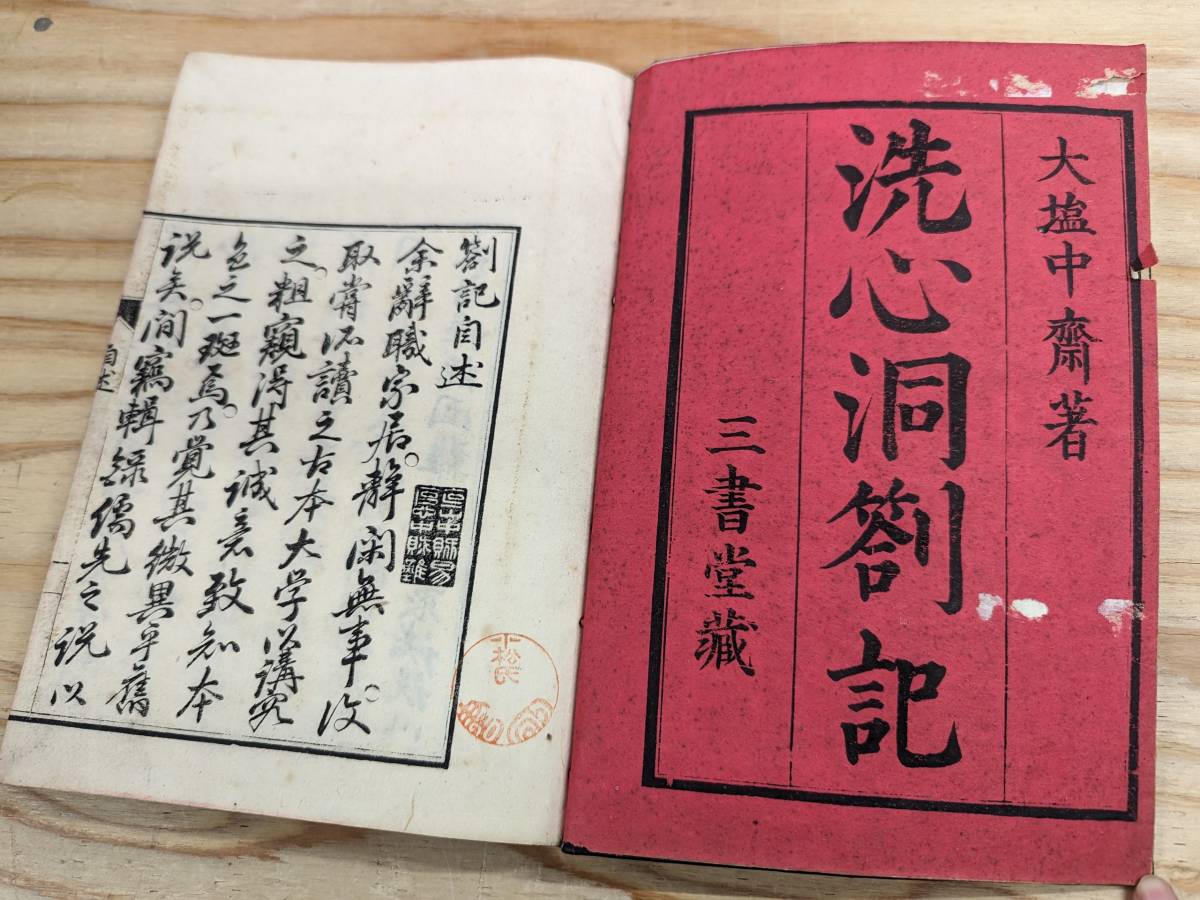 大塩中齋著
洗心洞劄記
三書堂藏
劄記自述
余辭職家居。靜閑無事。復
取嘗所讀之古本大学以講究
之。粗窺得其誠意致知本
色之一斑焉。乃覺其微異乎舊
説矣。間竊輯録儒先之説以
自述